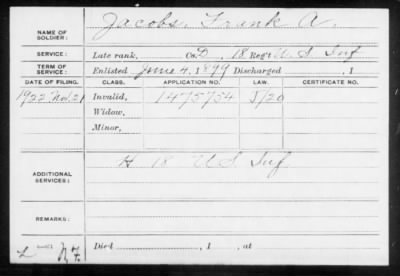 NAME OF SOLDIER: Jacobs, Frank A.
SERVICE: Late rank, Co. D, 18 Reg't U. S. Inf
TERM OF SERVICE: Enlisted June 4, 1899 Discharged , 1
DATE OF FILING. CLASS. APPLICATION NO. LAW. CERTIFICATE NO.
1922 Nov. 21 Invalid, 1475754
Widow,
Minor,
ADDITIONAL SERVICES: H 18 U S Inf
REMARKS:
Died , 1 , at